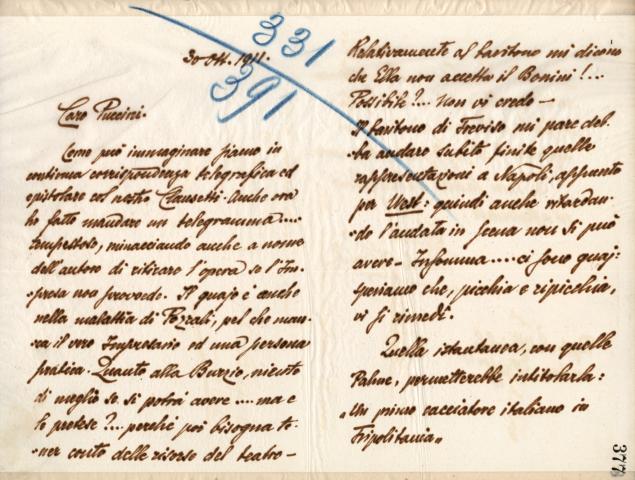 331
391
30 Ott. 1911.
Caro Puccini.
Come può immaginare siamo in
continua corrispondenza telegrafica ed
epistolare col nostro Clausetti. Anche ora
ho fatto mandare un telegramma....
tempestoso, minacciando anche a nome
dell'autore di ritirare l'opera se l'Im-
-presa non provvede. Il guajo è anche
nella malattia di Pozzali, pel che man-
-ca il vero Impresario ed una persona
pratica. Quanto alla Burzio, niente
di meglio se si potrà avere.... ma e
le pretese?... perchè poi bisogna te-
-ner conto delle risorse del teatro -
Relativamente al baritono mi dicono
che Ella non accetta il Bonini!...
Possibile?... Non vi credo -
Il baritono di Treviso mi pare deb-
-ba andare subito finite quelle
rappresentazioni a Napoli, appunto
per West: quindi anche ritardan-
-do l'andata in scena non si può
avere - Insomma.... ci sono guaj:
speriamo che, picchia e ripicchia,
vi si rimedî.
Quella istantanea, con quelle
Palme, permetterebbe intitolarla:
"Un primo cacciatore italiano in
Tripolitania"
377